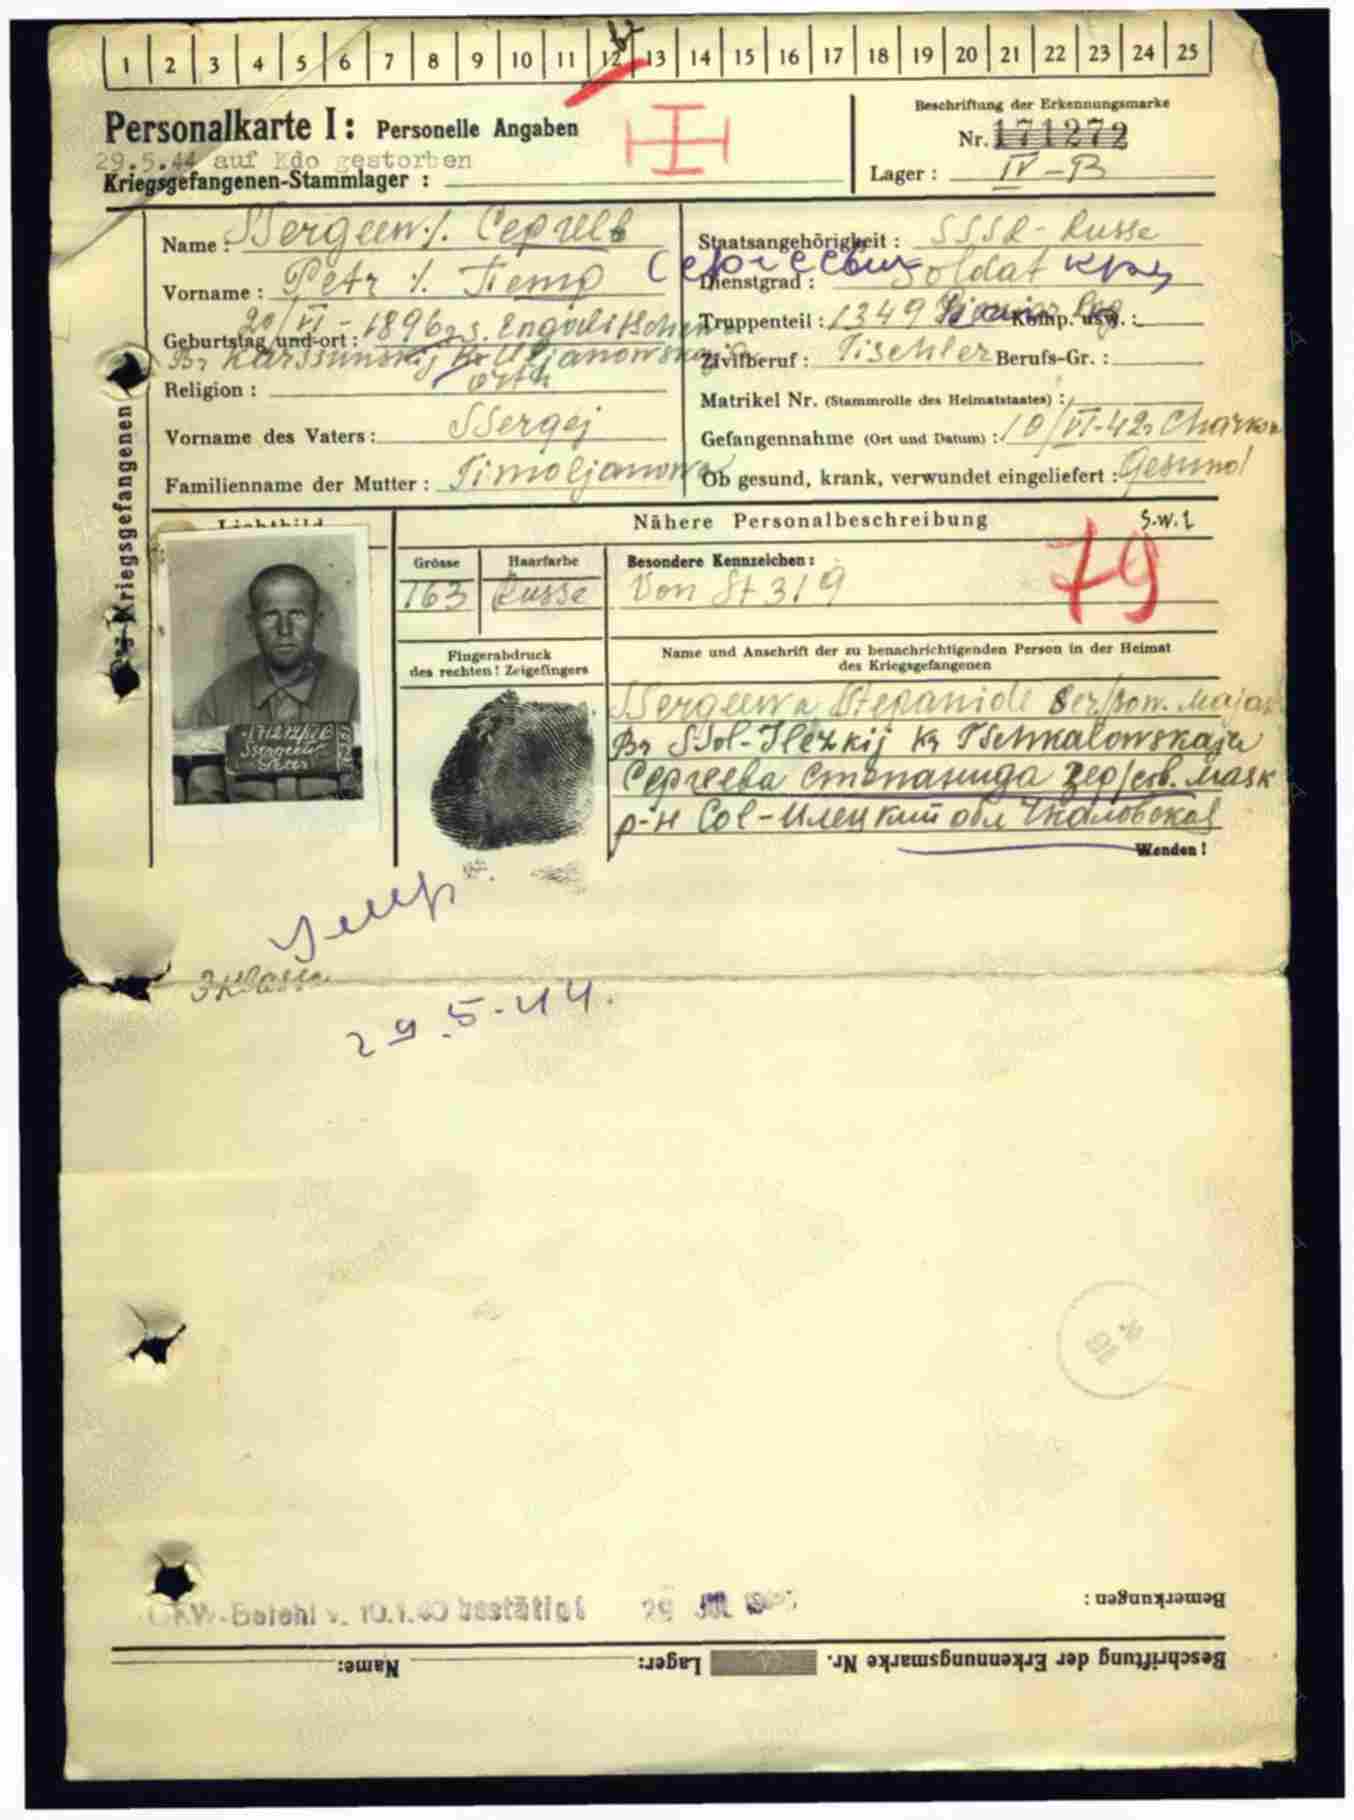 1 2 3 4 5 6 7 8 9 10 11 12 13 14 15 16 17 18 19 20 21 22 23 24 25
Personalkarte I: Personelle Angaben
29.5.44 auf Kdo gestorben
Kriegsgefangenen-Stammlager :
Beschriftung der Erkennungsmarke
Nr. 171272
Lager : IV-B
Des Kriegsgefangenen
Name : Ssergeew ./. Сергеев
Vorname : Petr ./. Петр Сергеевич
Geburtstag und-ort : 20/VI-1896
Br Karssunskij Kr Uljanowskaja
Religion : orth
Vorname des Vaters : Ssergej
Familienname der Mutter : Timoljanowa
Staatsangehörigkeit : SSSR-Russe
Dienstgrad : Soldat кр-ц
Truppenteil : 1349 Komp. usw. :
Zivilberuf : Tischler Berufs-Gr. :
Matrikel Nr. (Stammrolle des Heimatstaates) :
Gefangennahme (Ort und Datum) : 10/VI-42 Charkow
Ob gesund, krank, verwundet eingeliefert : Gesund
Lichtbild
Nähere Personalbeschreibung
S.w.1
79
Grösse
163
Haarfarbe
Russe
Besondere Kennzeichen :
Von St 319
Fingerabdruck
des rechten! Zeigefingers
Name und Anschrift der zu benachrichtigenden Person in der Heimat
des Kriegsgefangenen
Ssergeewa Stepanide
Br Ssol-Ilezkij Kr Tschkalowskaja
Сергеева Степанида
р-н Сол-Илецкий обл Чкаловская
Wenden!
171272 IVB
Ssergeew
Petr
умер
3 Klassa
29.5.44.
Bemerkungen :
OKW-Befehl v. 10.1.40 bestätigt 29
Beschriftung der Erkennungsmarke Nr. Lager: Name: